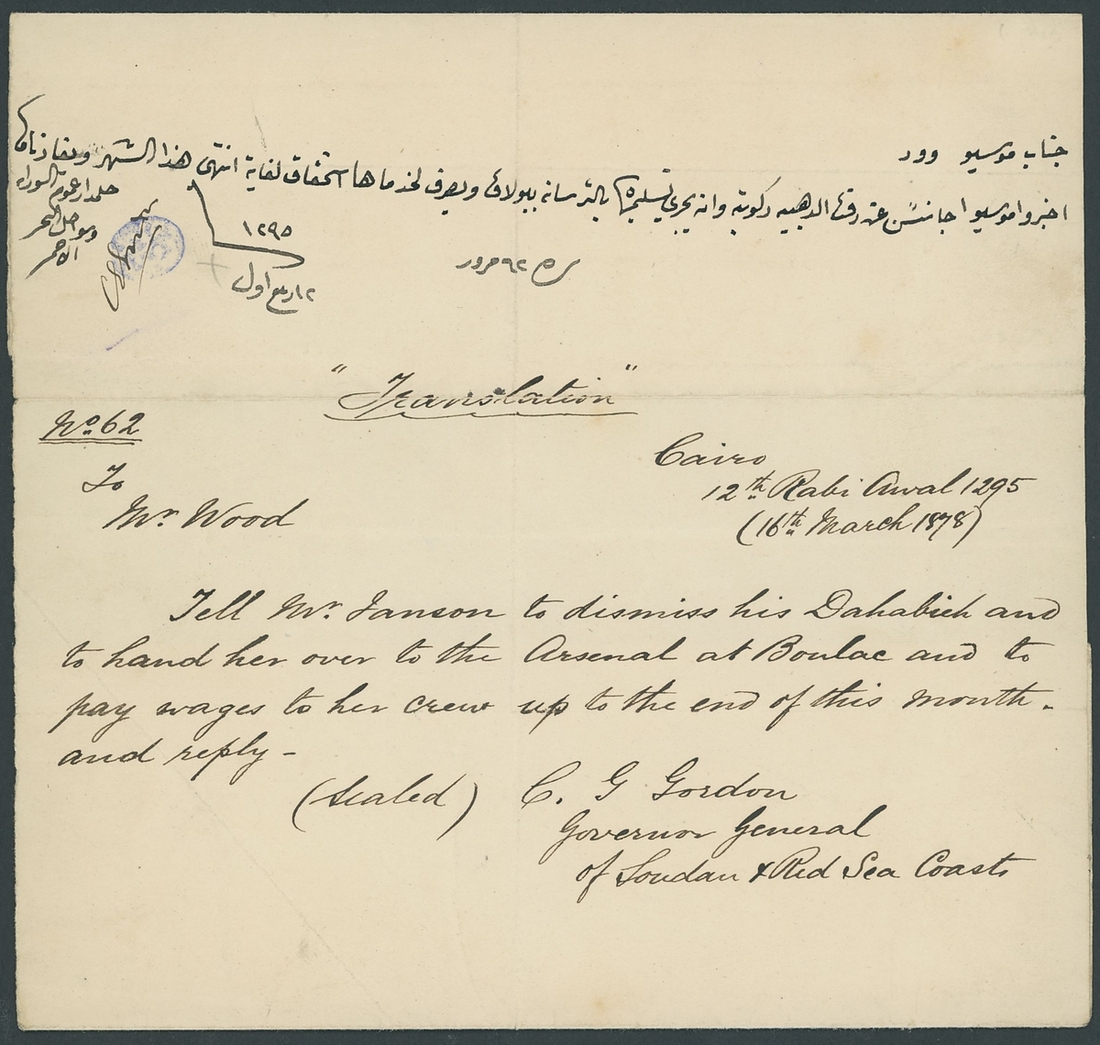 جناب موسيو وود
اخبروا موسيو اجانسن عن رفت الدهبيه ركوبته وانه يجري تسليمها بالترسانه ببولاق ويصرف لخدماها استحقاق لغاية انتهى هذا الشهر و
حكمدار عموم السودان
وسواحل البحر
الاحمر
١٢٩٥
١٢ ربيع اول
٦٢
"Translation"
No 62
Cairo
12th Rabi Awal 1295
(16th March 1878)
To
Mr. Wood
Tell Mr. Janson to dismiss his Dahabieh and
to hand her over to the Arsenal at Boulac and to
pay wages to her crew up to the end of this month.
and reply -
(Sealed) C. G Gordon
Governor General
of Soudan & Red Sea Coasts